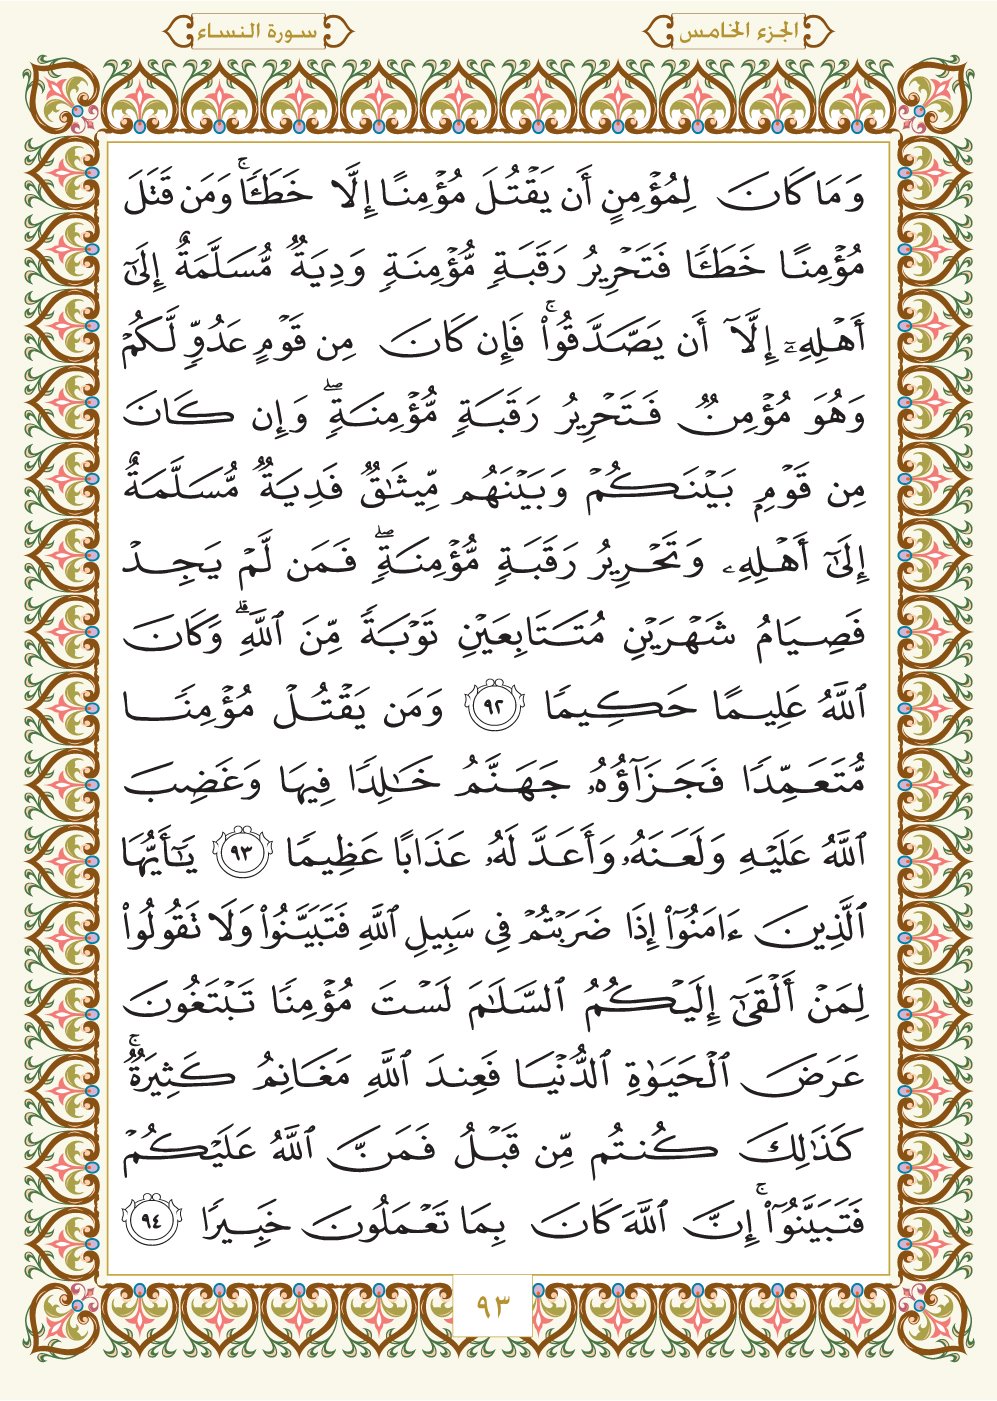 الجزء الخامس
سورة النساء
وَمَا كَانَ لِمُؤۡمِنٍ أَن يَقۡتُلَ مُؤۡمِنًا إِلَّا خَطَـٔٗاۚ وَمَن قَتَلَ
مُؤۡمِنًا خَطَـٔٗا فَتَحۡرِيرُ رَقَبَةٖ مُّؤۡمِنَةٖ وَدِيَةٞ مُّسَلَّمَةٌ إِلَىٰٓ
أَهۡلِهِۦٓ إِلَّآ أَن يَصَّدَّقُواْۚ فَإِن كَانَ مِن قَوۡمٍ عَدُوّٖ لَّكُمۡ
وَهُوَ مُؤۡمِنٞ فَتَحۡرِيرُ رَقَبَةٖ مُّؤۡمِنَةٖۖ وَإِن كَانَ
مِن قَوۡمِۭ بَيۡنَكُمۡ وَبَيۡنَهُم مِّيثَٰقٞ فَدِيَةٞ مُّسَلَّمَةٌ
إِلَىٰٓ أَهۡلِهِۦ وَتَحۡرِيرُ رَقَبَةٖ مُّؤۡمِنَةٖۖ فَمَن لَّمۡ يَجِدۡ
فَصِيَامُ شَهۡرَيۡنِ مُتَتَابِعَيۡنِ تَوۡبَةٗ مِّنَ ٱللَّهِۗ وَكَانَ
ٱللَّهُ عَلِيمًا حَكِيمٗا ٩٢ وَمَن يَقۡتُلۡ مُؤۡمِنٗا
مُّتَعَمِّدٗا فَجَزَآؤُهُۥ جَهَنَّمُ خَٰلِدٗا فِيهَا وَغَضِبَ
ٱللَّهُ عَلَيۡهِ وَلَعَنَهُۥ وَأَعَدَّ لَهُۥ عَذَابًا عَظِيمٗا ٩٣ يَٰٓأَيُّهَا
ٱلَّذِينَ ءَامَنُوٓاْ إِذَا ضَرَبۡتُمۡ فِي سَبِيلِ ٱللَّهِ فَتَبَيَّنُواْ وَلَا تَقُولُواْ
لِمَنۡ أَلۡقَىٰٓ إِلَيۡكُمُ ٱلسَّلَٰمَ لَسۡتَ مُؤۡمِنٗا تَبۡتَغُونَ
عَرَضَ ٱلۡحَيَوٰةِ ٱلدُّنۡيَا فَعِندَ ٱللَّهِ مَغَانِمُ كَثِيرَةٞۚ
كَذَٰلِكَ كُنتُم مِّن قَبۡلُ فَمَنَّ ٱللَّهُ عَلَيۡكُمۡ
فَتَبَيَّنُوٓاْۚ إِنَّ ٱللَّهَ كَانَ بِمَا تَعۡمَلُونَ خَبِيرٗا ٩٤
٩٣